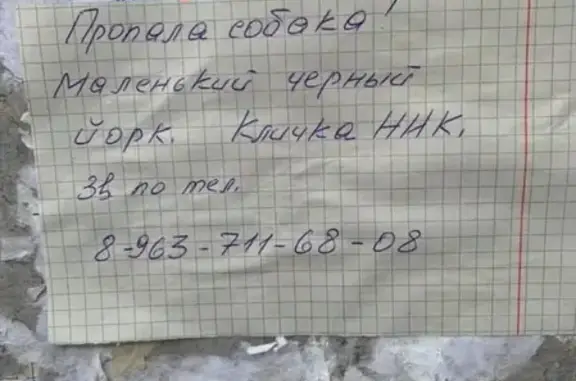 Пропала собака!
Маленький черный
йорк. Кличка ННК.
Зв по тел.
8-963-711-68-08